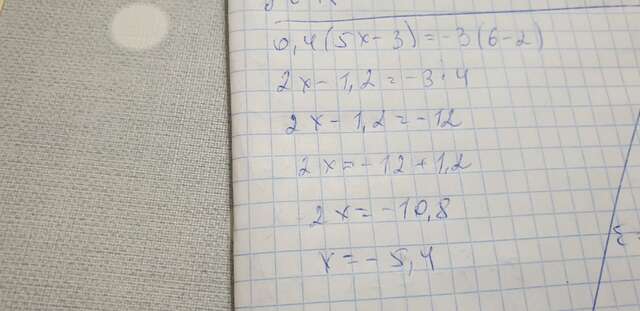 0,4(5x-3)=-3(6-2)
2x-1,2=-3·4
2x-1,2=-12
2x=-12+1,2
2x=-10,8
x=-5,4